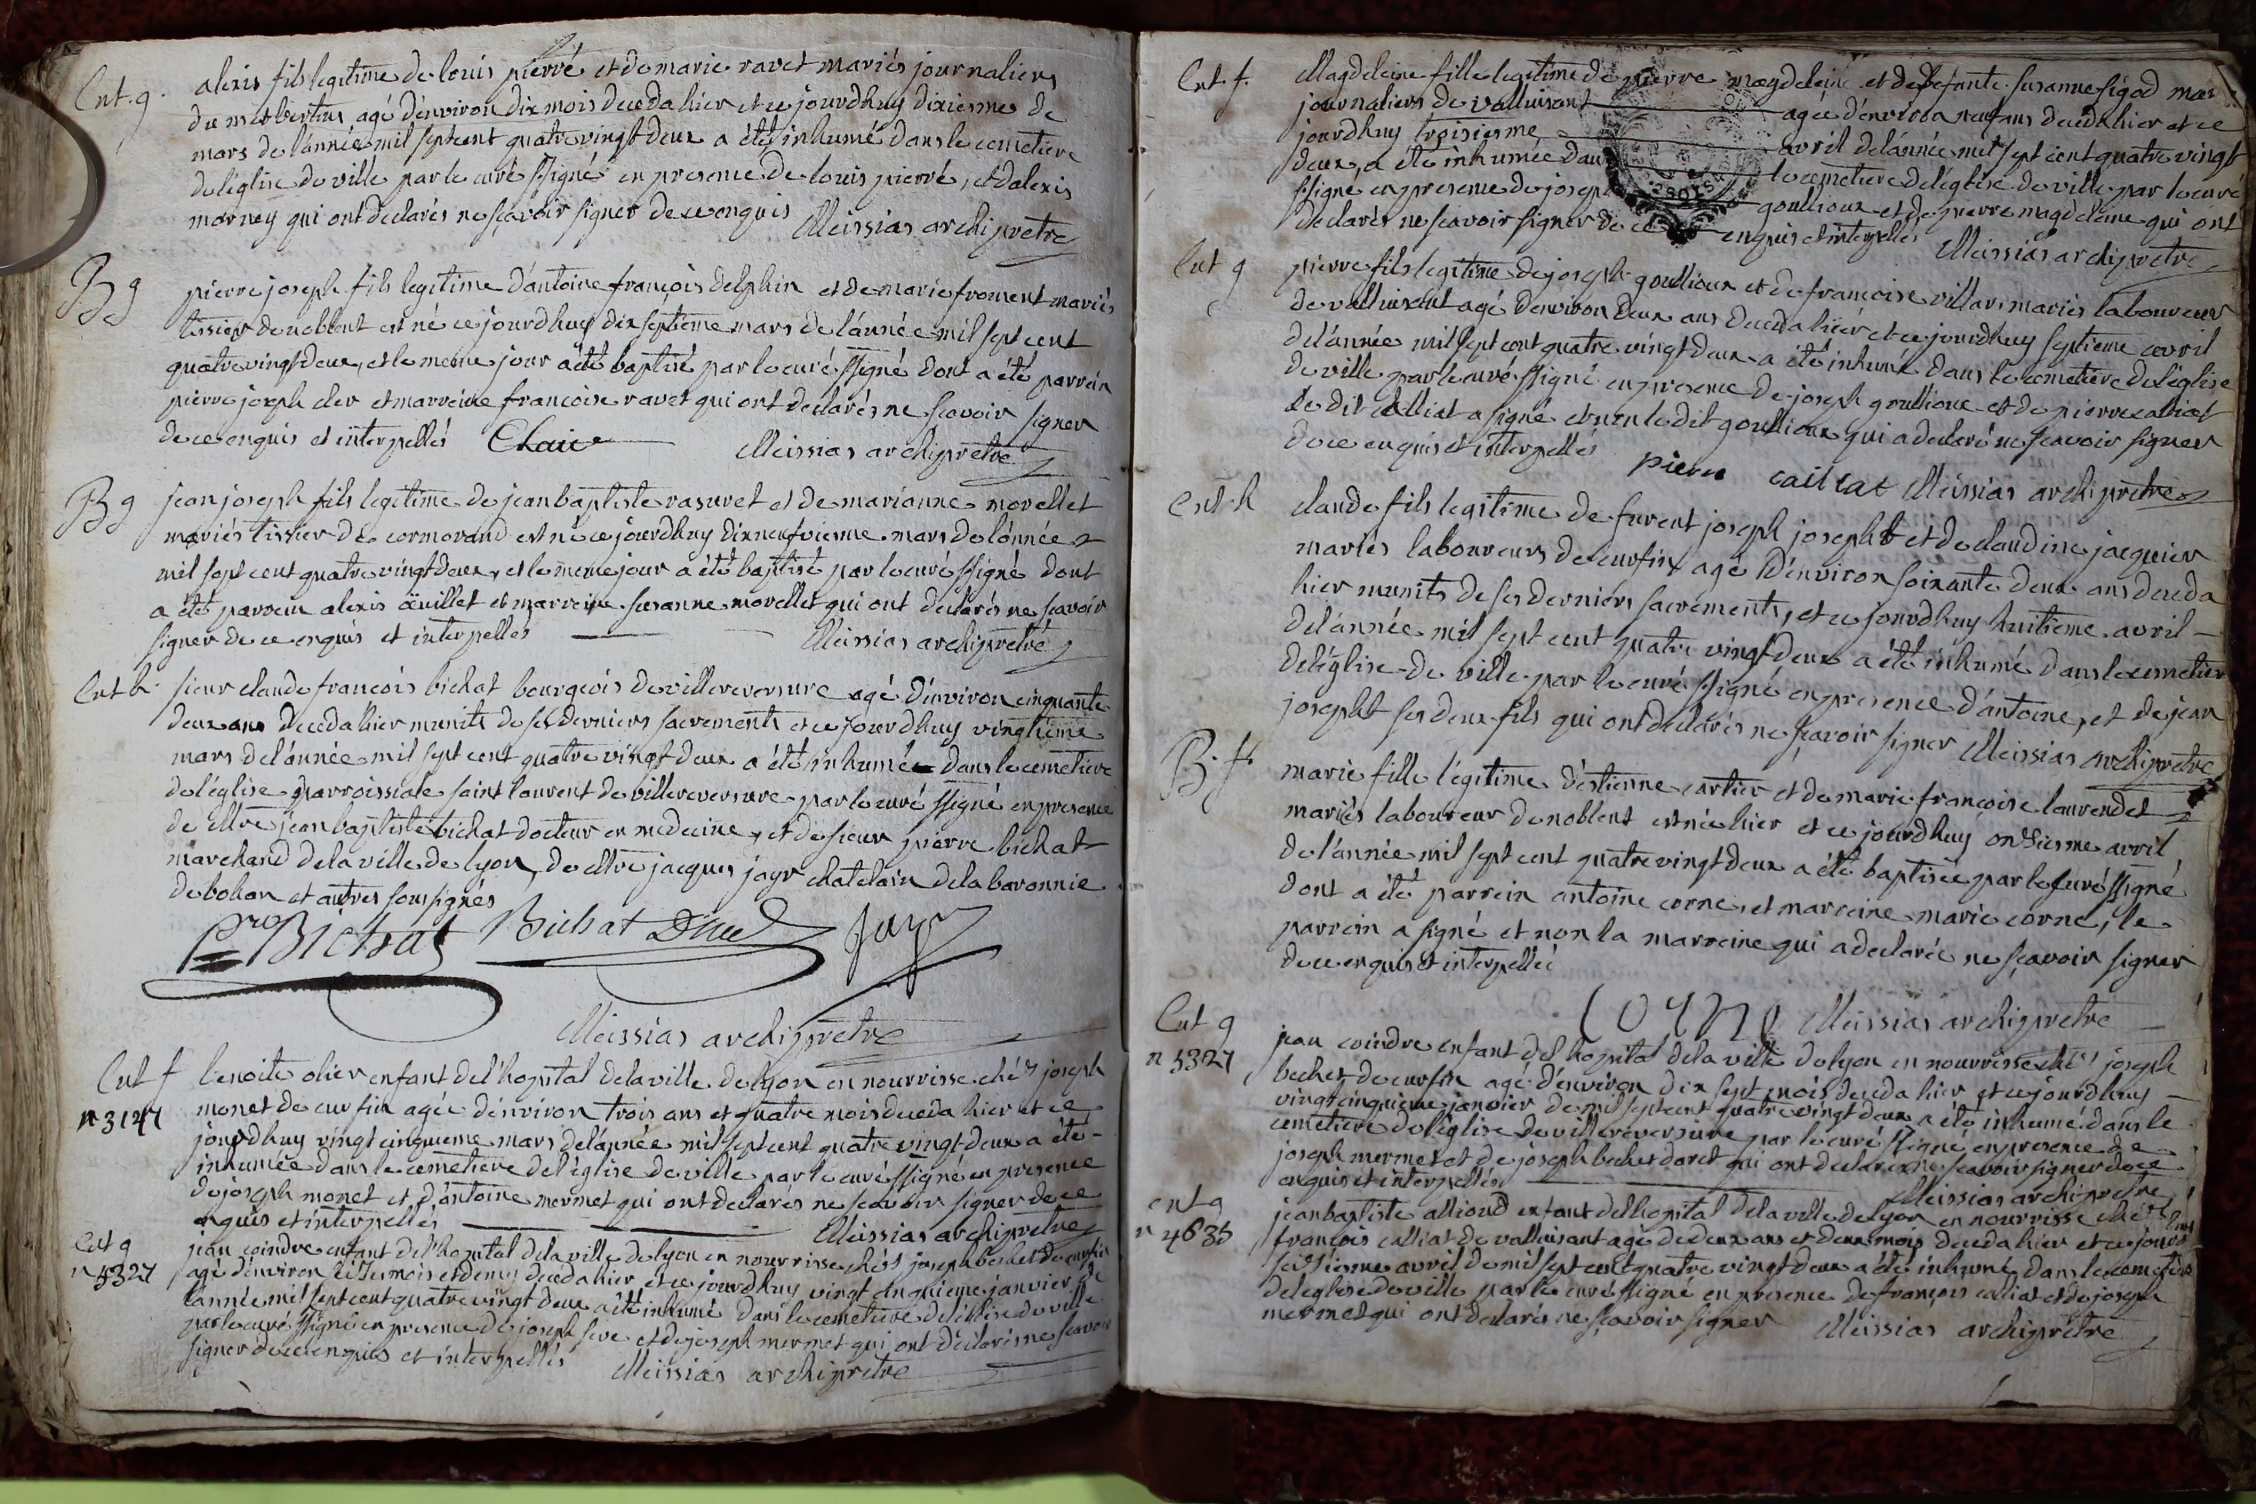 Ent. g.
alexis fils legitime de louis pierré et de marie ravet mariés journaliers
du agé d'environ dix mois deceda hier et ce jourdhuy dixiesme de
mars de l'année mil sept cent quatre vingt deux a été inhumé dans le cemetiere
de l'église de ville par le curé ssigné en presence de louis pierré, et d'alexis
mornay qui ont declarés ne sçavoir signer de ce enquis Meissias archipretre
B g
pierre joseph fils legitime d'antoine françois delphin et de marie froment mariés
tissier de noblent est né ce jourdhuy dix septieme mars de l'année mil sept cent
quatre vingt deux, et le meme jour a été baptisé par le curé ssigné dont a été parrain
pierre joseph cler et marreine francoise ravet qui ont declarés ne sçavoir signer
de ce enquis et interpellés Meissias archipretre
B g
jean joseph fils legitime de jean baptiste rasuret et de marianne morellet
mariés tissier de cormorand est né ce jourdhuy dixneufviesme mars de l'année
mil sept cent quatre vingt deux, et le meme jour a été baptisé par le curé ssigné dont
a été parrein alexis œuillet et marreine susanne morellet qui ont declarés ne scavoir
signer de ce enquis et interpellés Meissias archipretré
Ent h.
sieur claude francois bichat bourgeois de villereversure agé d'environ cinquante
deux ans deceda hier munits de ses derniers sacrements et ce jourdhuy vingtieme
mars de l'année mil sept cent quatre vingt deux a été inhumé dans le cemetiere
de l'église parroissiale saint laurent de villereversure par le curé ssigné en presence
de Mtre jean baptiste bichat docteur en medecine, et de sieur pierre bichat
marchand de la ville de lyon, de Mtre jacques jayr chatelain de la baronnie
de bohan et autres soussignés
Pre Bichat Bichat Jayr
Meissias archipretre
Ent f
n 3147
benoite olier enfant de l'hopital de la ville de lyon en nourrisse chés joseph
monet de curfin agée d'environ trois ans et quatre mois deceda hier et ce
jourdhuy vingt cinquieme mars de l'année mil sept cent quatre vingt deux a été
inhumée dans le cemetiere de l'église de ville par le curé ssigné en presence
de joseph monet et d'antoine mermet qui ont declarés ne scavoir signer de ce
enquis et interpellés Meissias archipretre
Ent g
n 5327
jean coindre enfant de l'hopital de la ville de lyon en nourrisse chés joseph bechet de curfin
agé d'environ mois et demy deceda hier et ce jourdhuy vingt cinquieme janvier de
l'année mil sept cent quatre vingt deux a été inhumé dans le cemetiere de l'église de ville
par le curé ssigné en presence de joseph et de joseph mermet qui ont declarés ne scavoir
signer de ce enquis et interpellés Meissias archiprétre
Ent. f.
Magdeleine fille legitime de pierre magdeleine et de defante susanne sigod mar
journaliers de valluisant agée d'environ neuf ans deceda hier et ce
jourdhuy troisiesme avril de l'année mil sept cent quatre vingt
deux, a été inhumée dans le cemetiere de l'église de ville par le curé
ssigné en presence de joseph goullioux et de pierre magdeleine qui ont
declarés ne scavoir signer de ce enquis et interpellés Meissias archipretre
Ent g
pierre fils legitime de joseph goullioux et de francoise villars mariés laboureur
de valluisant agé d'environ deux ans deceda hier et ce jourdhuy septieme avril
de l'année mil sept cent quatre vingt deux a été inhumé dans le cemetiere de l'église
de ville par le curé ssigné en presence de joseph goullioux et de pierre calliat
le dit calliat a signé et non le dit goullioux qui a declaré ne scavoir signer
de ce enquis et interpellés pierre cailiat Meissias archiprétre
Ent. h
claude fils legitime de furent joseph josepht et de claudine jacquier
mariés laboureurs de curfin agé d'environ soixante deux ans deceda
hier munits de ses derniers sacrements, et ce jourdhuy huitieme avril
de l'année mil sept cent quatre vingt deux a été inhumé dans le cemetier
de l'église de ville par le curé ssigné en presence d'antoine, et de jean
josepht ses deux fils qui ont declarés ne sçavoir signer Meissias archipretre
B. f.
marie fille légitime d'estienne cartier et de marie francoise laurendet
mariés laboureur de noblent est née hier et ce jourdhuy onsiesme avril
de l'année mil sept cent quatre vingt deux a été baptisée par le curé ssigné
dont a été parrein antoine corne, et marreine marie corne, le
parrein a signé et non la marreine qui a declarée ne sçavoir signer
de ce enquis et interpellée
Meissias archiprétre
Ent g
n 5327
jean coindre enfant de l'hopital de la ville de lyon en nourrisse chés joseph
bechet de curfin agé d'environ dix sept mois deceda hier et ce jourdhuy
vingt cinquieme janvier de mil sept cent quatre vingt deux a été inhumé dans le
cemetiere de l'église de villereversure par le curé ssigné en presence de
joseph mermet et de joseph bechet qui ont declarés ne scavoir signer de ce
enquis et interpellés Meissias archiprétre
ent g
n 4635
jean baptiste alliond enfant de l'hopital de la ville de lyon en nourrisse chés
françois calliat de valluisant agé de deux ans et deux mois deceda hier et ce jourd
avril de mil sept cent quatre vingt deux a été inhumé dans le cemetiere
de l'eglise de ville par le curé ssigné en presence de françois calliat et de joseph
mermet qui ont declarés ne sçavoir signer Meissias archiprétre